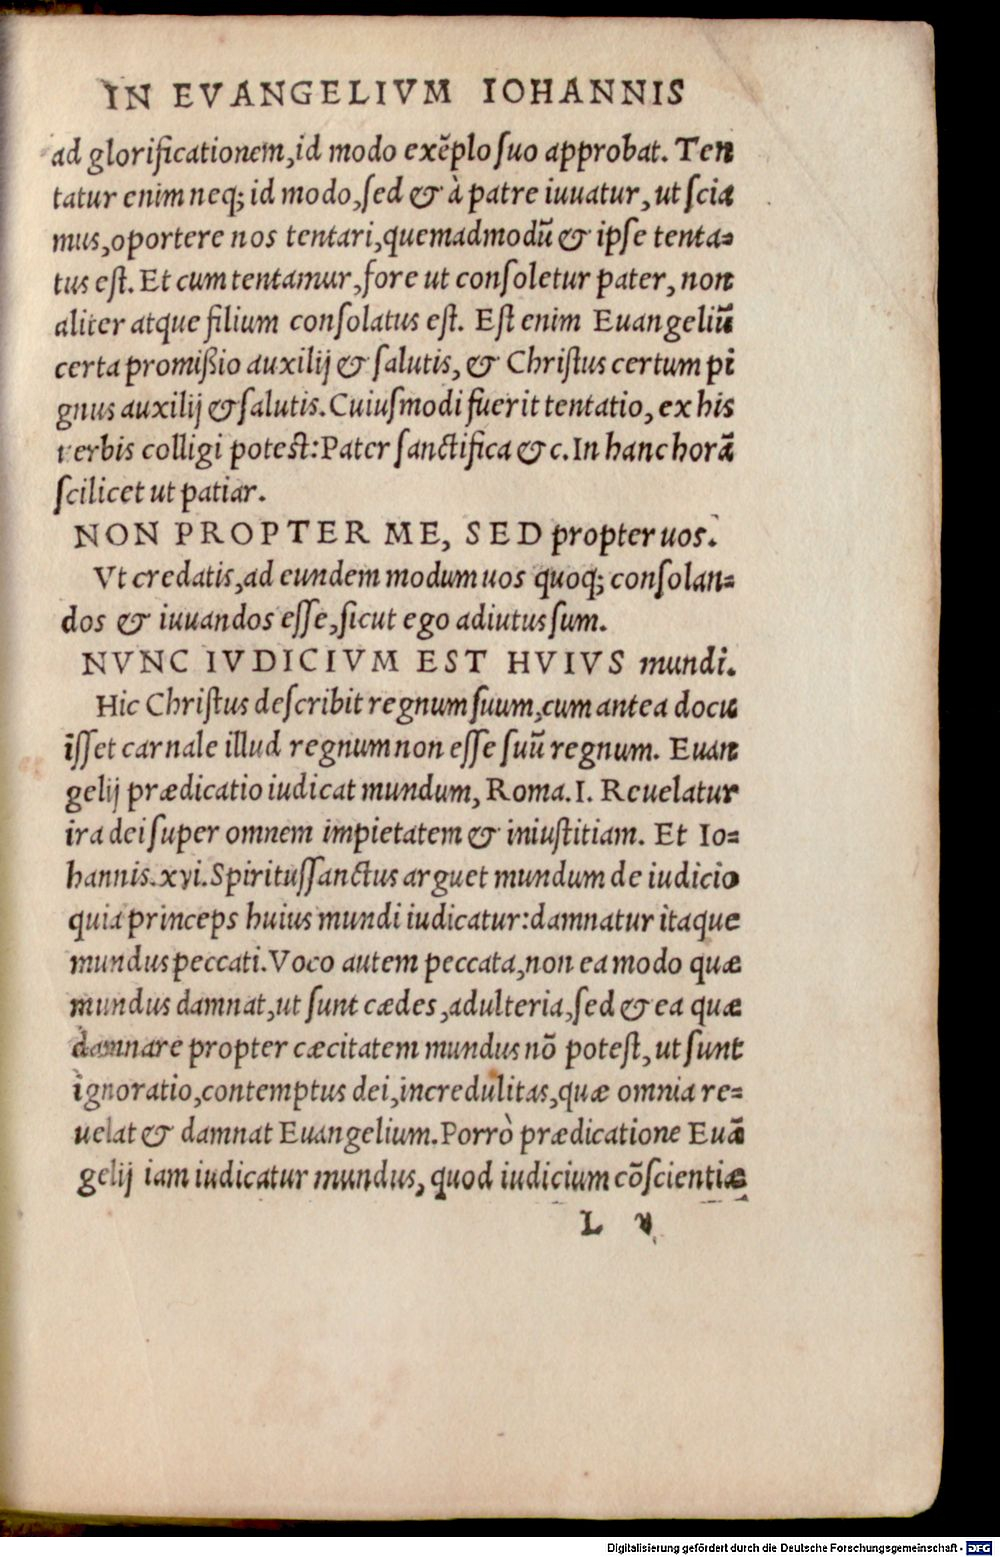 IN EVANGELIVM IOHANNIS
ad glorificationem, id modo exẽplo ſuo approbat. Ten
tatur enim neq; id modo, ſed & à patre iuuatur, ut ſcia
mus, oportere nos tentari, quemadmodũ & ipſe tenta⸗
tus eſt. Et cum tentamur, fore ut conſoletur pater, non
aliter atque filium conſolatus eſt. Eſt enim Euangeliũ
certa promißio auxilij & ſalutis, & Chriſtus certum pi
gnus auxilij & ſalutis. Cuiuſmodi fuerit tentatio, ex his
uerbis colligi poteſt: Pater ſanctifica &c. In hanc horã
ſcilicet ut patiar.
NON PROPTER ME, SED propter uos.
Vt credatis, ad eundem modum uos quoq; conſolan⸗
dos & iuuandos eſſe, ſicut ego adiutus ſum.
NVNC IVDICIVM EST HVIVS mundi.
Hic Chriſtus deſcribit regnum ſuum, cum antea docu
iſſet carnale illud regnum non eſſe ſuũ regnum. Euan
gelij prædicatio iudicat mundum, Roma. I. Reuelatur
ira dei ſuper omnem impietatem & iniuſtitiam. Et Io⸗
hannis. xvi. Spirituſſanctus arguet mundum de iudicio
quia princeps huius mundi iudicatur: damnatur itaque
mundus peccati. Voco autem peccata, non ea modo quæ
mundus damnat, ut ſunt cædes, adulteria, ſed & ea quæ
damnare propter cæcitatem mundus nõ poteſt, ut ſunt
ignoratio, contemptus dei, incredulitas, quæ omnia re⸗
uelat & damnat Euangelium. Porrò prædicatione Euã
gelij iam iudicatur mundus, quod iudicium cõſcientiæ
L v
Digitalisierung gefördert durch die Deutsche Forschungsgemeinschaft - DFG